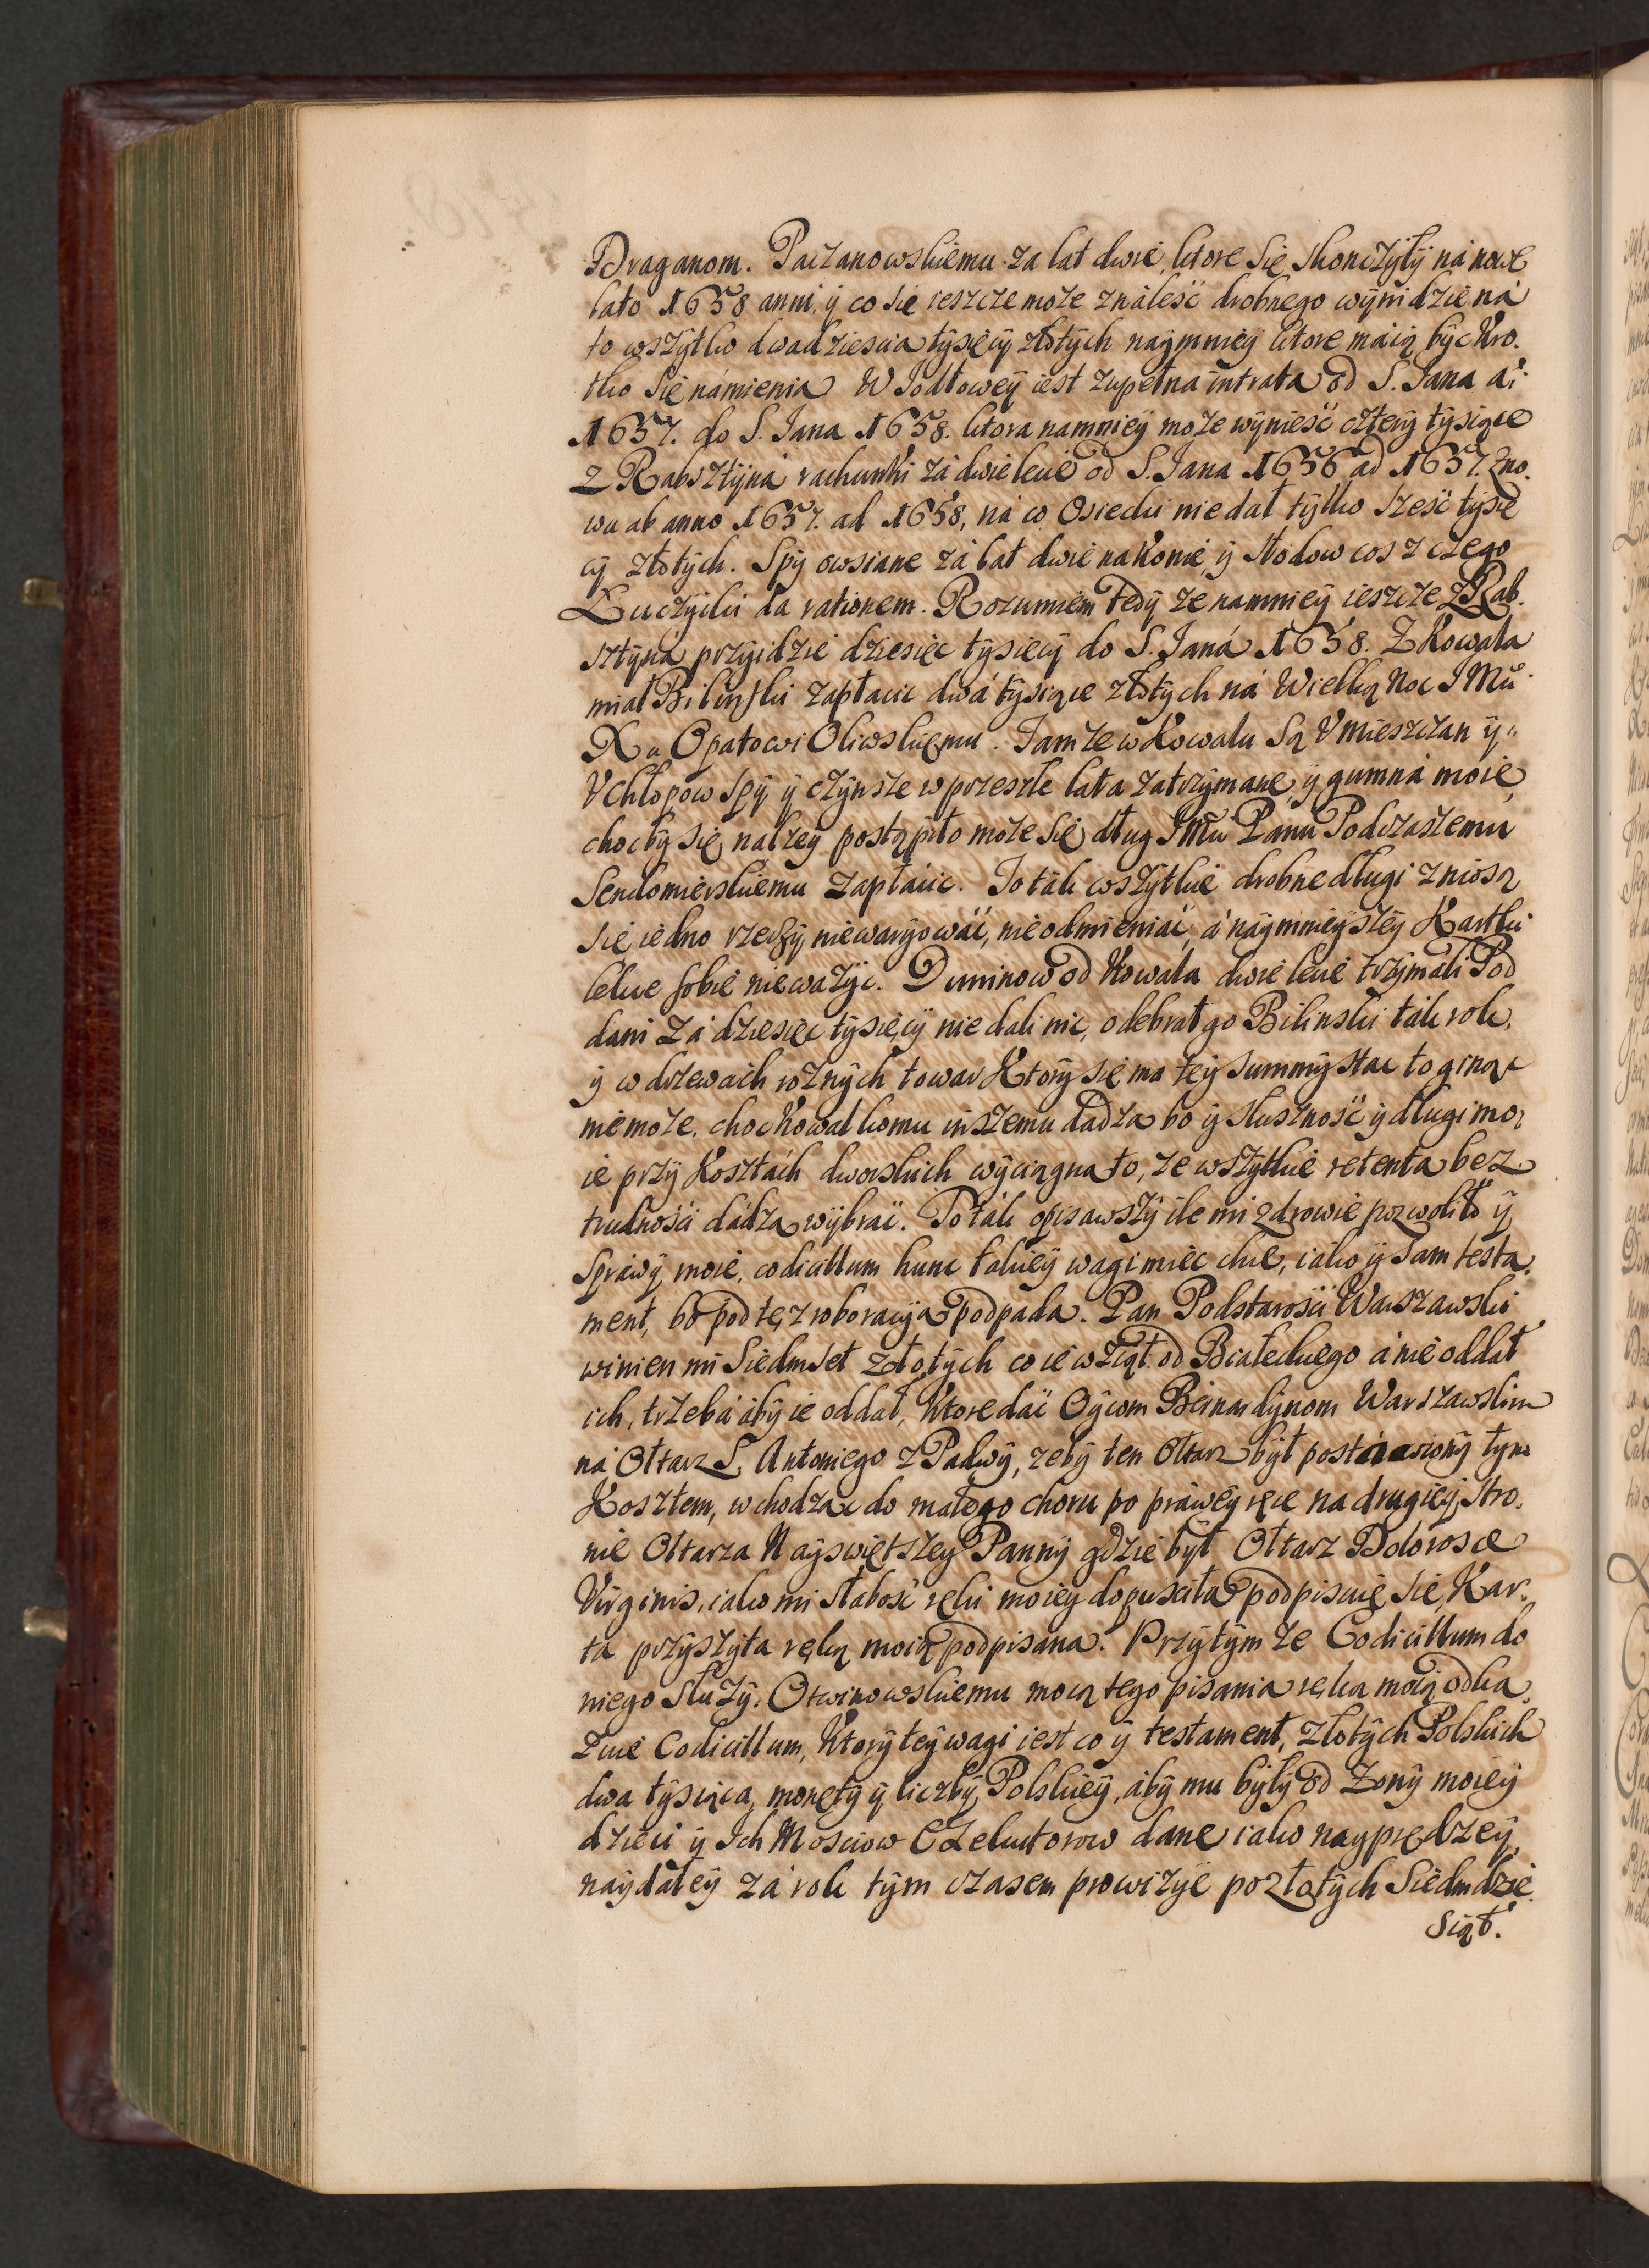 Draganom. Paczanowskiemu za lat dwie, ktore się skonczyły ná nowe
lato 1658 anni, y co sie ieszcze moze ználesć drobnego wynidzie ná
to wszytko dwadziescia tysięcy złotych naymniey ktore máią być kro.
tko się námienia W Jodłowey iest zupełna intrata od S. Jana a͞i
1657. do S. Jana 1658. ktora namniey może wyniesć cztery tysiące
z Rabsztyna rachunki zá dwie lecie od S. Jana 1656 ad 1657. zno.
wu ab anno 1657. ad 1658, ná co Osiecki nie dał tylko sześć tysię
cy złotych. Spy owsiane zá lat dwie na konie, y słodow cos z czego
Łuczycki da rationem. Rozumiem tedy ze namniey ieszcze z Rab.
sztyna przyidzie dziesięc tysięcy do S. Janá 1658. Z Kowala
miał Bilinski zapłacic dwá tysiące złotych ná Wielką Noc J Mu
Xu Opatowi Oliwskiemu. Jamze w Kowalu Są V mieszczan y
V chłopow Spy y czynsze w przeszłe lata zatrzymane, y gumná moie,
choćby się nalzey postąpiło może się dług J Mu Panu Podczaszemu
Sendomierskiemu zapłacic. To ták wszytkie drobne dlugi zniosą
się iedno rzeczy niewaryować, nieodmieniać, á náymnieyszey Kartki
lekce sobie nieważyc. Duninow od Kowala dwie lecie trzymáli Pod
dani Zá dziesięc tysięcy nie dali nic, odebrał go Bilinski ták rok,
y w drzewách roznych towar Ktory się ma tey summy stac to ginąc
niemoże, choc Kowal komu inszemu dadza bo y słusznosć y dlugi mo,
ie przy Kosztách dworskich wyciągna to, ze wszytkie retenta bez
trudnosći dádza wybráć. To ták opisawszy ile mi zdrowie pozwoliło y
Spráwy moie, codicillum hunc takiey wagi miec chcę, iako y Sam testa.
ment, bo pod tęz roboracyią podpada. Pan Podstarosći Warszawski
winien mi Siedmset złotych co ie wziął od Białeckiego á nie oddał
ich, trzebá áby ie oddał, Ktore dać Oycom Bernardynom Warszawskim
ná Ołtarz S. Antoniego z Padwy, zeby ten Ołtarz był postáwiony tym
Kosztem, wchodząc do małego choru po práwey ręce na drugiey stro.
nie Ołtarza Nayswiętszey Panny gdzie był Ołtarz Dolorosæ
Virginis, iako mi słabosć ręki moiey dopusciła podpisuię się, Kar.
ta przyszyta ręką moią podpisana. Przytym ze Codicillum do
niego służy. Otwinowskiemu mocą tego pisania ręką moią odka
zuię Codicillum, Ktory tey wagi iest co y testament, złotych Polskich
dwa tysiąca, monety y liczby Polskiey, áby mu były od Zony moiey
dzieci y Ich Mosciow Exekutorow dane iako nayprędzey,
náydáley zá rok tym czasem prowizye po złotych Siedmdzie
siąt.